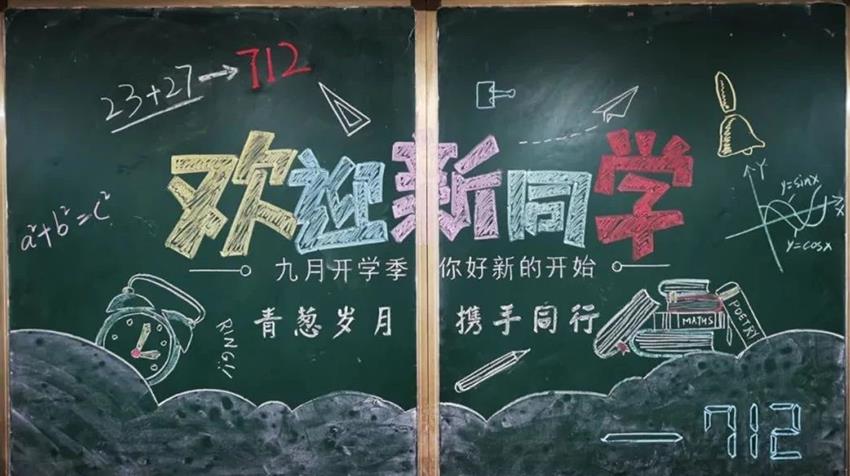 23+27→712
欢迎新同学
a²+b²=c²
Y
y=sinx
X
y=cosx
九月开学季 你好新的开始
青葱岁月 携手同行
RING!!
MATHS
POETRY
— 712